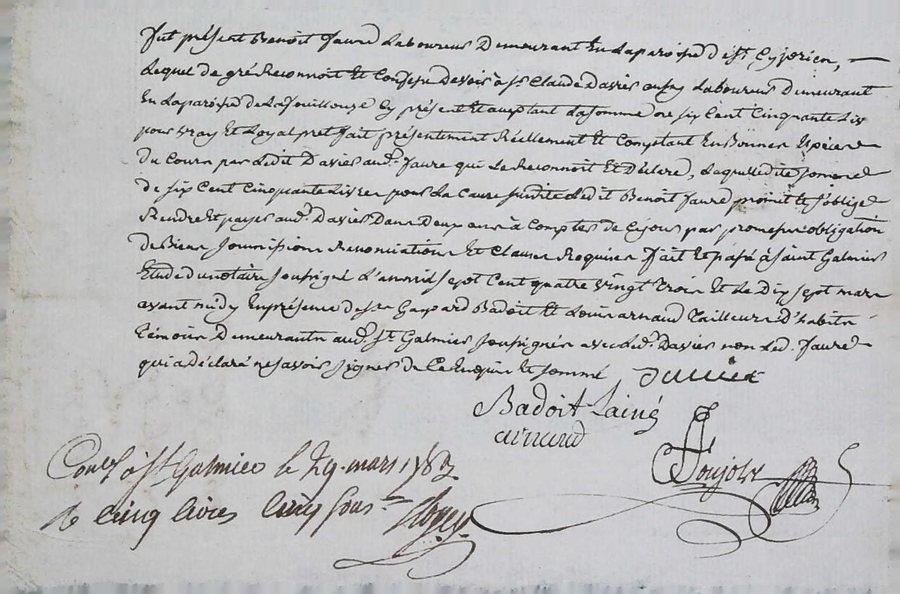 Fut présent Benoit Faure Laboureur Demeurant En La paroisse de St. Cyprien,
Lequel de gré Reconnoit Et Confesse Devoir à Sr. Claude Davier aussy Laboureur Demeurant
En La paroisse de La fouillouse Cy présent Et acceptant La Somme de six Cent Cinquante Livres
pour vray Et Loyal pret fait présentement Réellement Et Comptant En Bonnes Espèces
du Cours par Ledit Davier aud. Faure qui Le Reconnoit Et Déclare, Laquelle dite somme
de six Cent Cinquante Livres pour La Cause susdite Ledit Benoit Faure promet Et s'oblige
Rendre Et payer aud. Davier Dans Deux ans à Compter de Ce jour par promesse obligation
de Biens Soumissions Renonciations Et Clauses Requises Fait Et passé à Saint Galmier
Etude du notaire Soussigné L'an mil Sept Cent quatre vingt trois Et Le Dix Sept mars
avant midy En présence de Sr. Gaspard Badoit Et Louis arnaud Tailleurs D'habits
témoins Demeurants aud. St. Galmier Soussignés avec Led. Davier non Led. Faure
qui a déclaré ne Savoir Signer de Ce Enquis Et Sommé Davier
Badoit Lainé
arnaud
Poujols
Con.lé à St Galmier le 29 mars 1783
R. cinq livres cinq sous